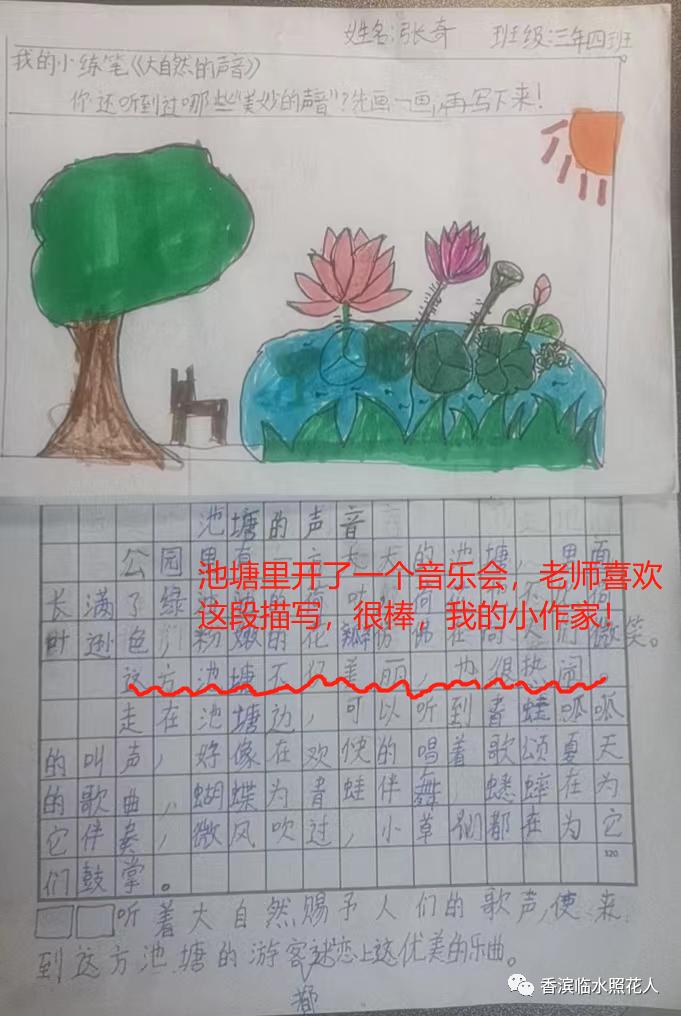 姓名:张奇 班级:三年四班
我的小练笔《大自然的声音》
你还听到过哪些“美妙的声音”?先画一画,再写下来!
池塘的声音
公园里有一方大大的池塘,里面
长满了绿
池塘里开了一个音乐会,老师喜欢
叶逊色,粉嫩的花瓣仿佛在向人们微笑。
这段描写,很棒,我的小作家!
这方池塘不仅美丽,也很热闹。
走在池塘边,可以听到青蛙呱呱
的叫声,好像在欢快的唱着歌颂夏天
的歌曲,蝴蝶为青蛙伴舞,蟋蟀在为
它伴奏,微风吹过,小草们都在为它
们鼓掌。
320
听着大自然赐予人们的歌声,使来
到这方池塘的游客都迷恋上这优美的乐曲。
香滨临水照花人